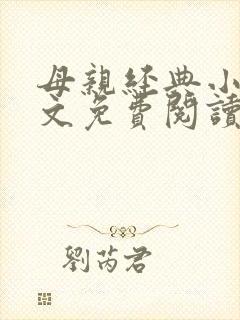 母親經典小
文免費閱讀
劉芮君